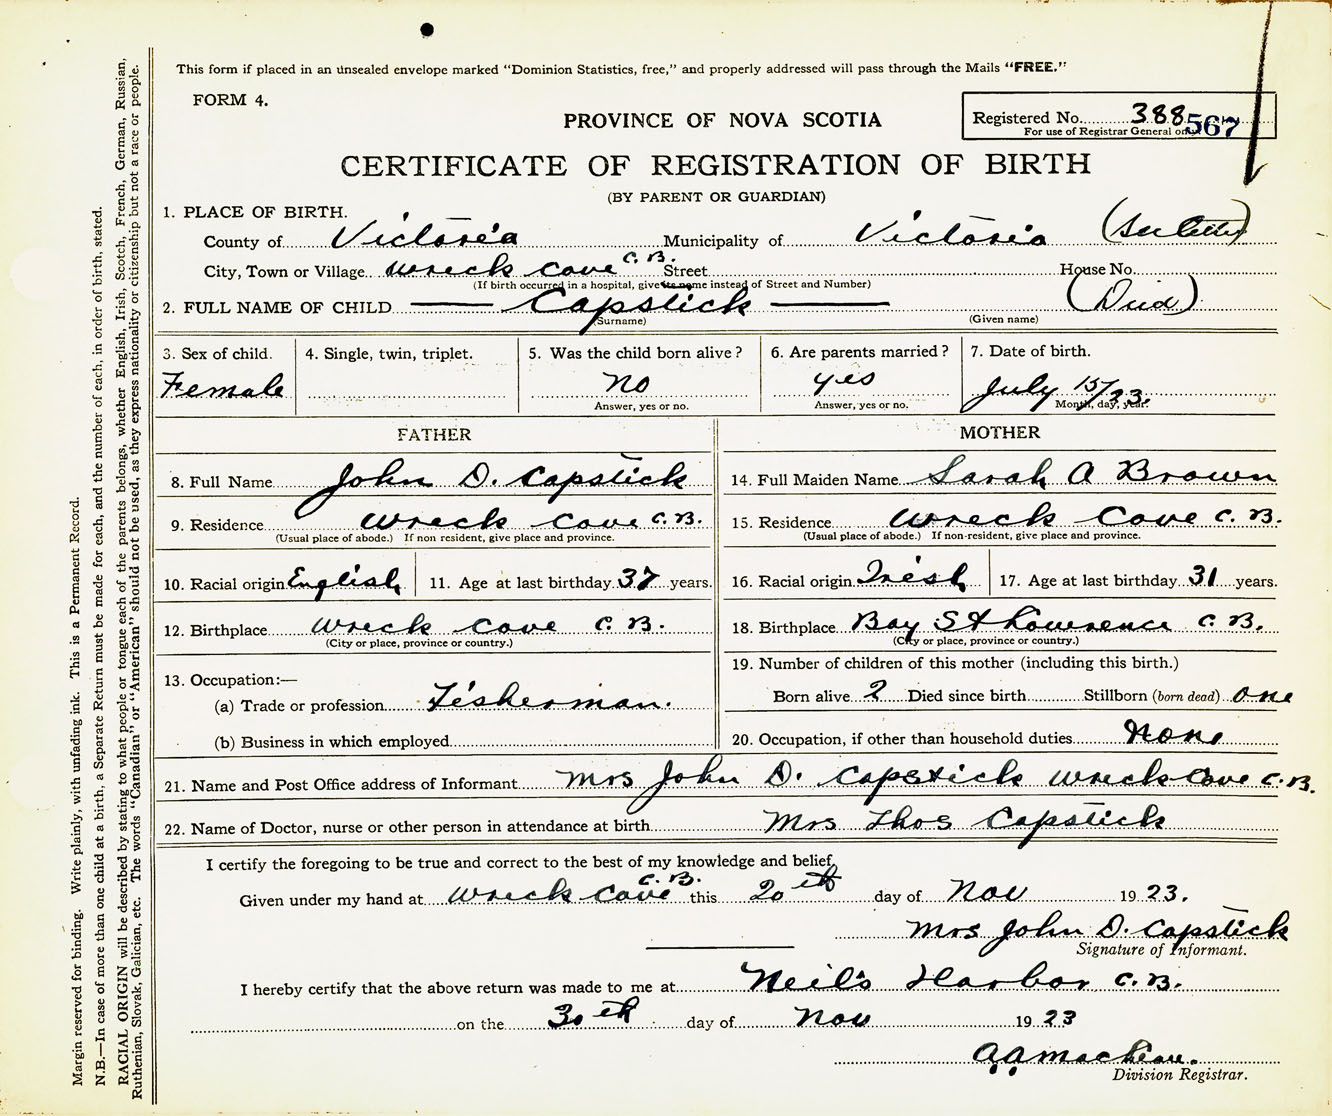 This form if placed in an unsealed envelope marked "Dominion Statistics, free," and properly addressed will pass through the Mails "FREE."
FORM 4.
PROVINCE OF NOVA SCOTIA
Registered No. 388 567
For use of Registrar General only
CERTIFICATE OF REGISTRATION OF BIRTH
(BY PARENT OR GUARDIAN)
1. PLACE OF BIRTH.
County of Victoria Municipality of Victoria (See letter)
City, Town or Village Wreck Cove C. B. Street House No.
(If birth occurred in a hospital, give its name instead of Street and Number)
2. FULL NAME OF CHILD — Capstick — (Died)
(Surname) (Given name)
3. Sex of child. 4. Single, twin, triplet. 5. Was the child born alive? 6. Are parents married? 7. Date of birth.
Female no yes July 15/23.
Answer, yes or no. Answer, yes or no. Month, day, year.
FATHER MOTHER
8. Full Name John D. Capstick 14. Full Maiden Name Sarah A Brown
9. Residence Wreck Cove C. B. 15. Residence Wreck Cove C. B.
(Usual place of abode.) If non resident, give place and province. (Usual place of abode.) If non-resident, give place and province.
10. Racial origin English 11. Age at last birthday 37 years. 16. Racial origin Irish 17. Age at last birthday 31 years.
12. Birthplace Wreck Cove C. B. 18. Birthplace Bay St Lawrence C. B.
(City or place, province or country.) (City or place, province or country.)
13. Occupation:— 19. Number of children of this mother (including this birth.)
(a) Trade or profession Fisherman. Born alive 2 Died since birth Stillborn (born dead) one
(b) Business in which employed 20. Occupation, if other than household duties None
21. Name and Post Office address of Informant Mrs John D. Capstick Wreck Cove C. B.
22. Name of Doctor, nurse or other person in attendance at birth Mrs Thos Capstick
I certify the foregoing to be true and correct to the best of my knowledge and belief,
Given under my hand at Wreck Cove C. B. this 20th day of Nov 1923.
Mrs John D. Capstick
Signature of Informant.
I hereby certify that the above return was made to me at Neil's Harbor C. B.
on the 30th day of Nov 1923
Division Registrar.
Margin reserved for binding. Write plainly, with unfading ink. This is a Permanent Record.
N.B.—In case of more than one child at a birth, a Separate Return must be made for each, and the number of each, in order of birth, stated.
RACIAL ORIGIN will be described by stating to what people or tongue each of the parents belongs, whether English, Irish, Scotch, French, German, Russian,
Ruthenian, Slovak, Galician, etc. The words "Canadian" or "American" should not be used, as they express nationality or citizenship but not a race or people.